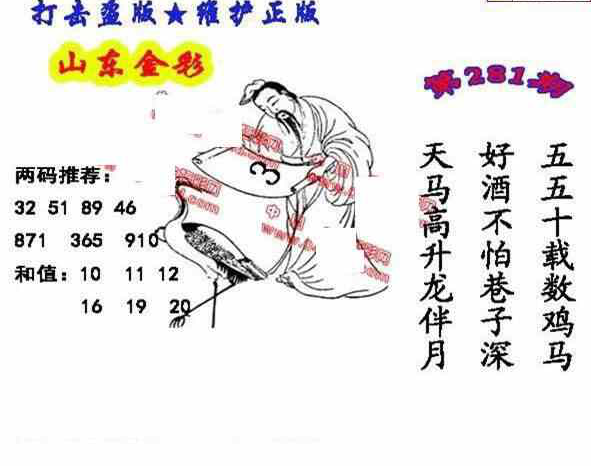 打击盗版★维护正版
山东金彩
第281期
两码推荐：
32 51 89 46
871 365 910
和值：10 11 12
16 19 20
3
五五十载数鸡马
好酒不怕巷子深
天马高升龙伴月